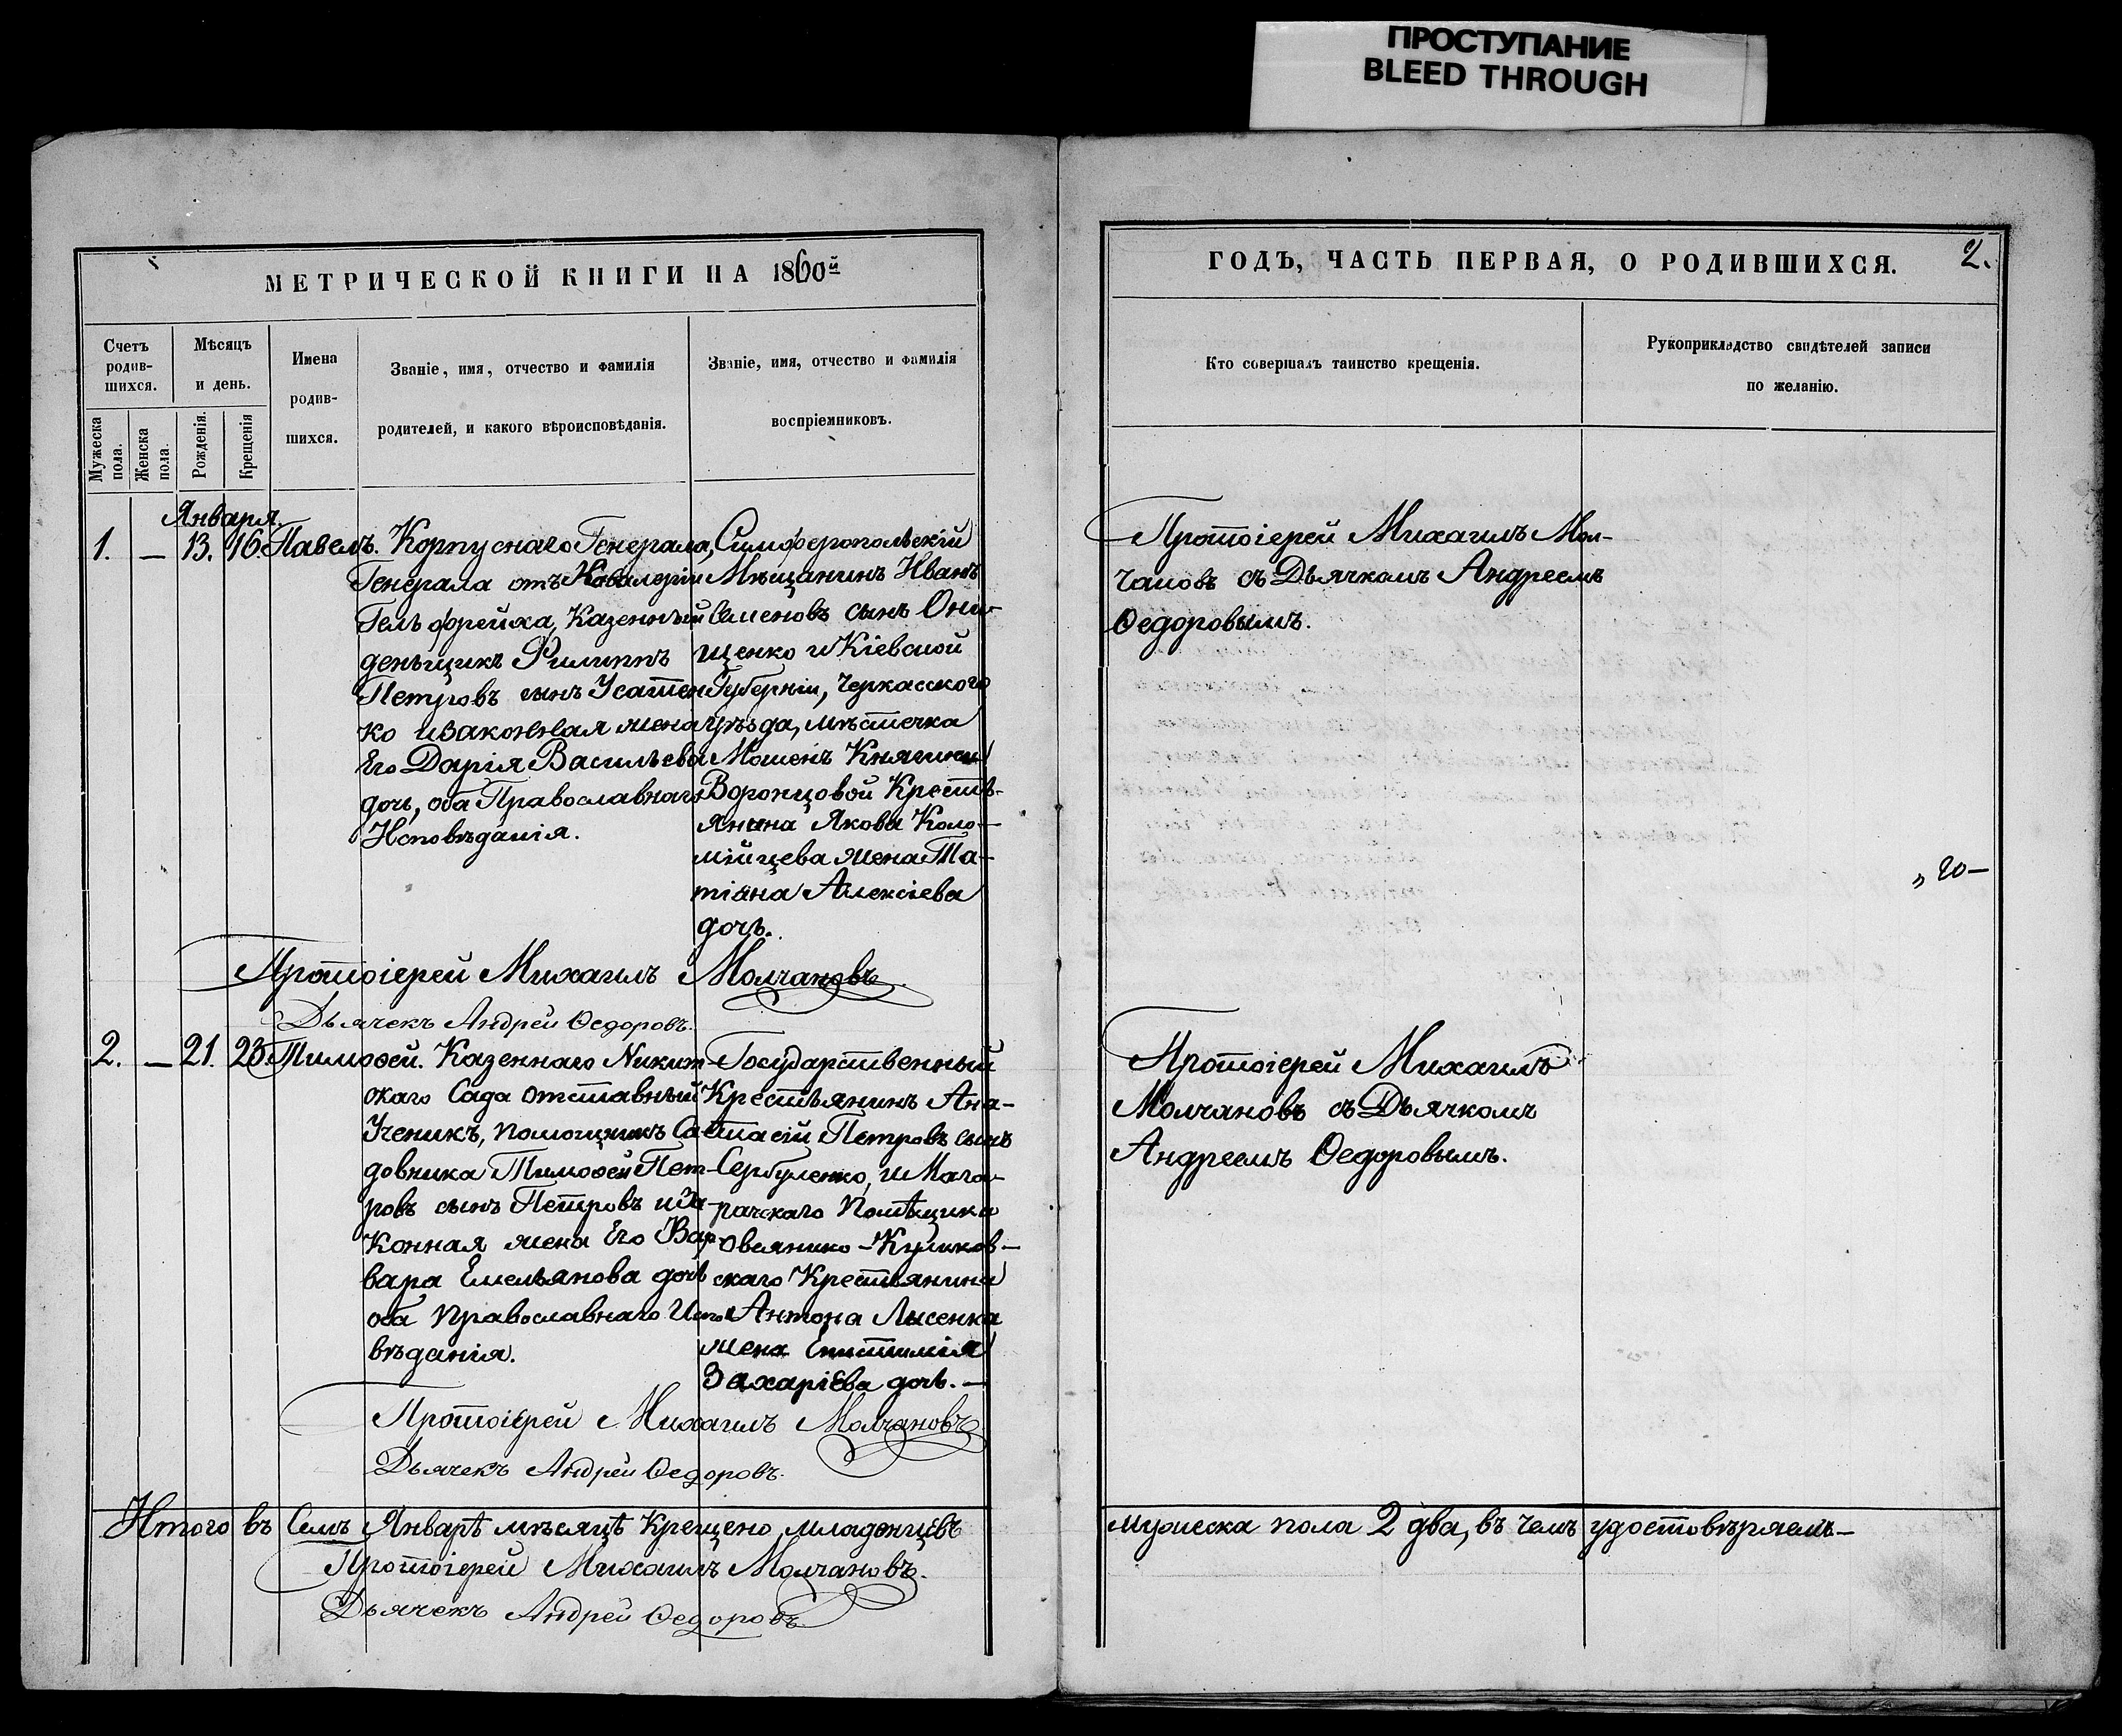 ПРОСТУПАНИЕ
BLEED THROUGH
МЕТРИЧЕСКОЙ КНИГИ НА 1860й
Счетъ родив-шихся.
Мужеска пола.
Женска пола.
Мѣсяцъ и день.
Рожденія.
Крещенія
Имена родив-шихся.
Званіе, имя, отчество и фамилія
родителей, и какого вѣроисповѣданія.
Званіе, имя, отчество и фамилія
воспріемниковъ.
Января.
1. — 13. 16. Павелъ.
Корпуснаго Генерала,
Генерала отъ Кавалеріи
Гельфрейха, Казенный
деньщикъ Филиппъ
Петровъ сынъ Усатен
ко и законная жена
Его Дарія Васильева
дочь, оба Православнаго
Исповѣданія.
Симферопольскій
Мѣщанинъ Иванъ
Семеновъ сынъ Они-
щенко и Кіевской
Губерніи, Черкасского
уѣзда, мѣстечка
Мошенъ Княгини
Воронцовой Крестъ-
янина Якова Коло-
мійцева жена Та-
тіана Алексіева
дочь.
Протоіерей Михаилъ Молчановъ.
Дьячекъ Андрей Ѳедоровъ.
2. — 21. 23. Тимоѳей.
Казеннаго Никит-
скаго Сада отставный
Ученикъ, помощникъ Са-
довника Тимоѳей Пет-
ровъ сынъ Петровъ и За-
конная жена Его Вар-
вара Емельянова дочь
оба Православнаго Испо
вѣданія.
Государственный
Крестьянинъ Ана-
стасій Петровъ сынъ
Сербуленко, и Мага-
рачскаго Помѣщика
Овсянико-Куликов-
скаго Крестьянина
Антона Лысенка
жена
Захаріева дочь. —
Протоіерей Михаилъ Молчановъ
Дьячекъ Андрей Ѳедоровъ.
Итого въ Семъ Январѣ мѣсяцѣ Крещено младенцевъ
Протоіерей Михаилъ Молчановъ.
Дьячекъ Андрей Ѳедоровъ.
ГОДЪ, ЧАСТЬ ПЕРВАЯ, О РОДИВШИХСЯ.
2.
Кто совершалъ таинство крещенія.
Рукоприкладство свидѣтелей записи
по желанію.
Протоіерей Михаилъ Мол-
чановъ съ Дьячкомъ Андреемъ
Ѳедоровымъ.
„ 20 —
Протоіерей Михаилъ
Молчановъ съ Дьячкомъ
Андреемъ Ѳедоровымъ.
мужеска пола 2 два, въ чемъ удостовѣряемъ —